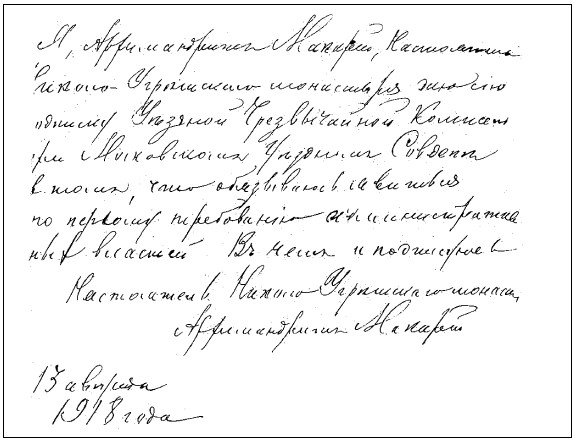 Я, Архимандритъ Макарій, Настоятель
Николо-Угрѣшскаго монастыря даю сію
подписку Уѣздной Чрезвычайной Комиссіи
при Московскомъ Уѣздномъ Совдепѣ
въ томъ, что обязываюсь явиться
по первому требованію административ
ныхъ властей Въ чемъ и подписуюсь
Настоятель Николо Угрѣшскаго монаст.
Архимандритъ Макарій
13 августа
1918 года